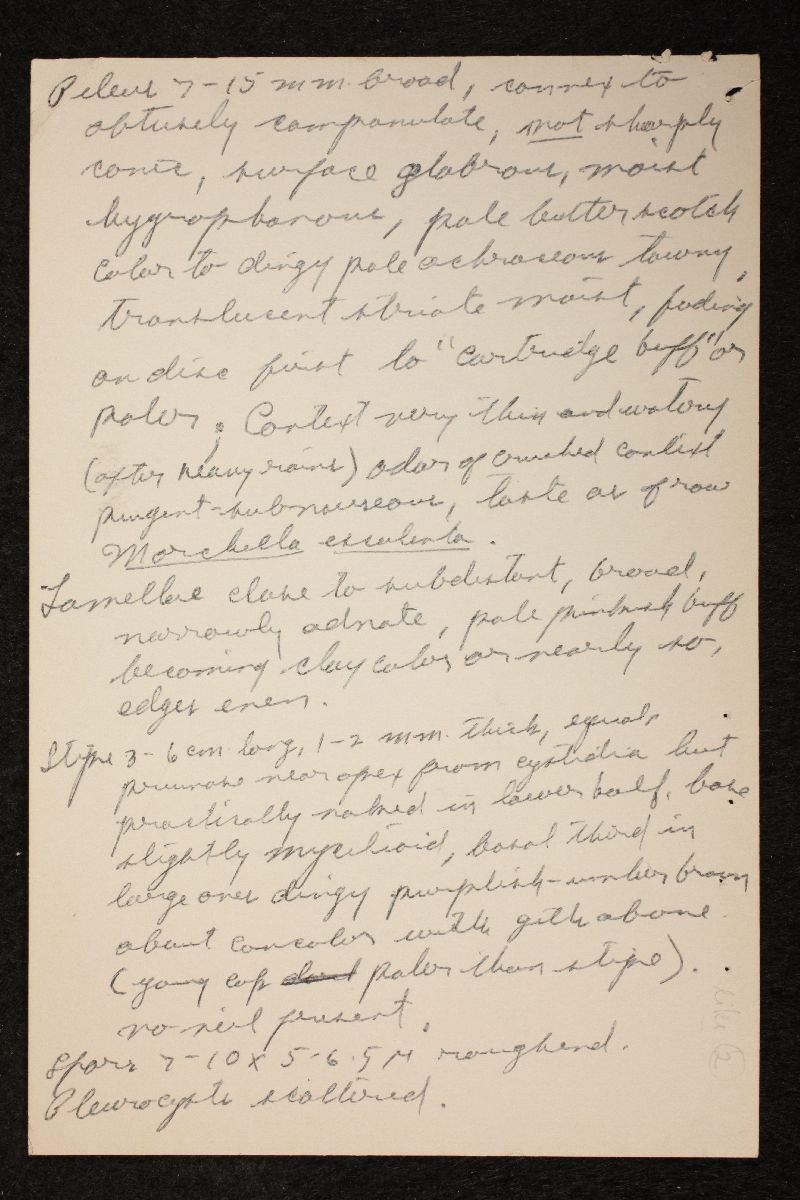 Pileus 7-15 mm broad, convex to
obtusely campanulate, not sharply
conic, surface glabrous, moist
hygrophanous, pale butterscotch
color to dingy pale ochraceous tawny,
translucent striate moist, fading
on disc first to "Cartridge buff" or
paler; Context very thin and watery
(after heavy rains) odor of crushed context
pungent-subnauseous, taste as of raw
Morchella esculenta.
Lamellae close to subdistant, broad,
narrowly adnate, pale pinkish buff
becoming clay color or nearly so,
edges even.
Stipe 3-6 cm long, 1-2 mm thick, equal,
pruinose near apex from cystidia but
practically naked in lower half, base
slightly mycelioid, basal third in
large ones dingy purplish-umber brown
about concolor with gills above
(young cap paler than stipe).
no veil present.
Spores 7-10 x 5-6.5 µ roughend.
Pleurocysts scattered.
like 2